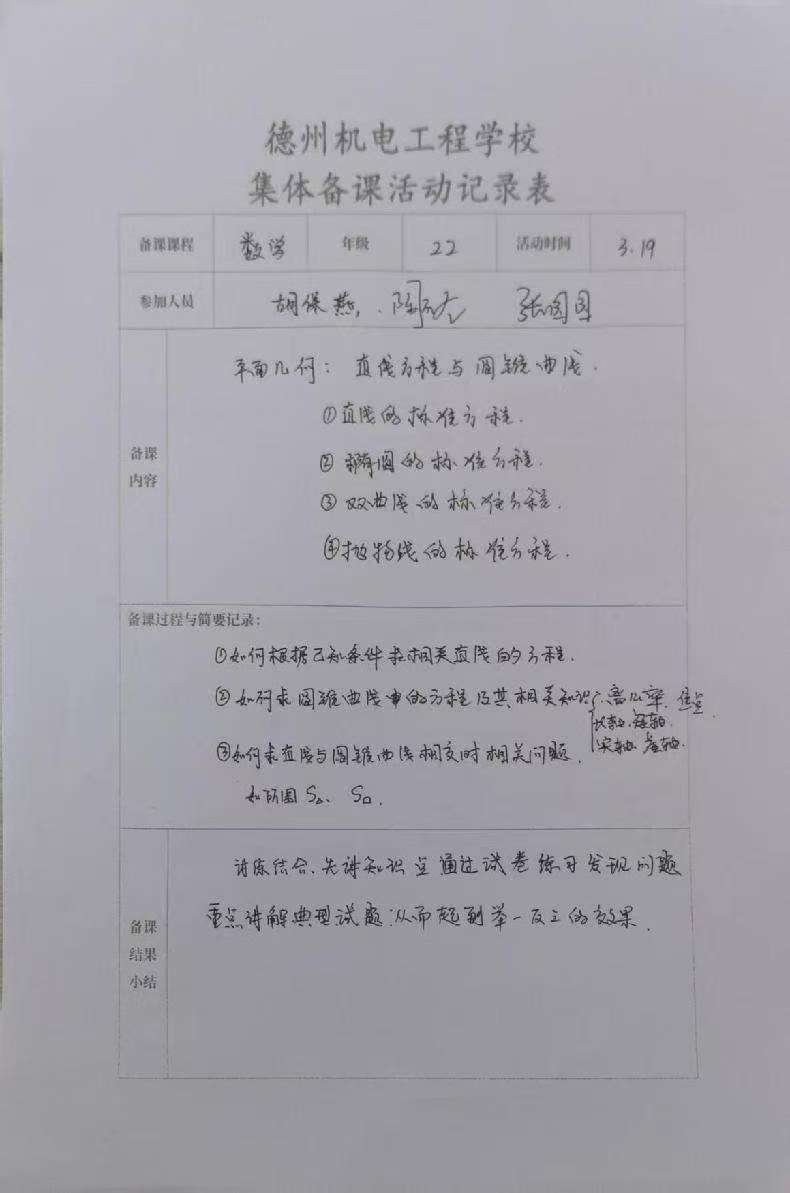 德州机电工程学校
集体备课活动记录表
备课课程 数学 年级 22 活动时间 3.19
参加人员 胡保燕、陈 张园园
平面几何：直线方程与圆锥曲线.
①直线的标准方程.
备课
内容
②椭圆的标准方程.
③双曲线的标准方程.
④抛物线的标准方程.
备课过程与简要记录：
①如何根据已知条件求相关直线的方程.
②如何求圆锥曲线中的方程及其相关知识 离心率、焦点.
长轴、短轴.
实轴、虚轴.
③如何求直线与圆锥曲线相交时相关问题.
如所围S△、S□.
讲练结合、先讲知识点通过试卷练习发现问题
重点讲解典型试题.从而起到举一反三的效果.
备课
结果
小结